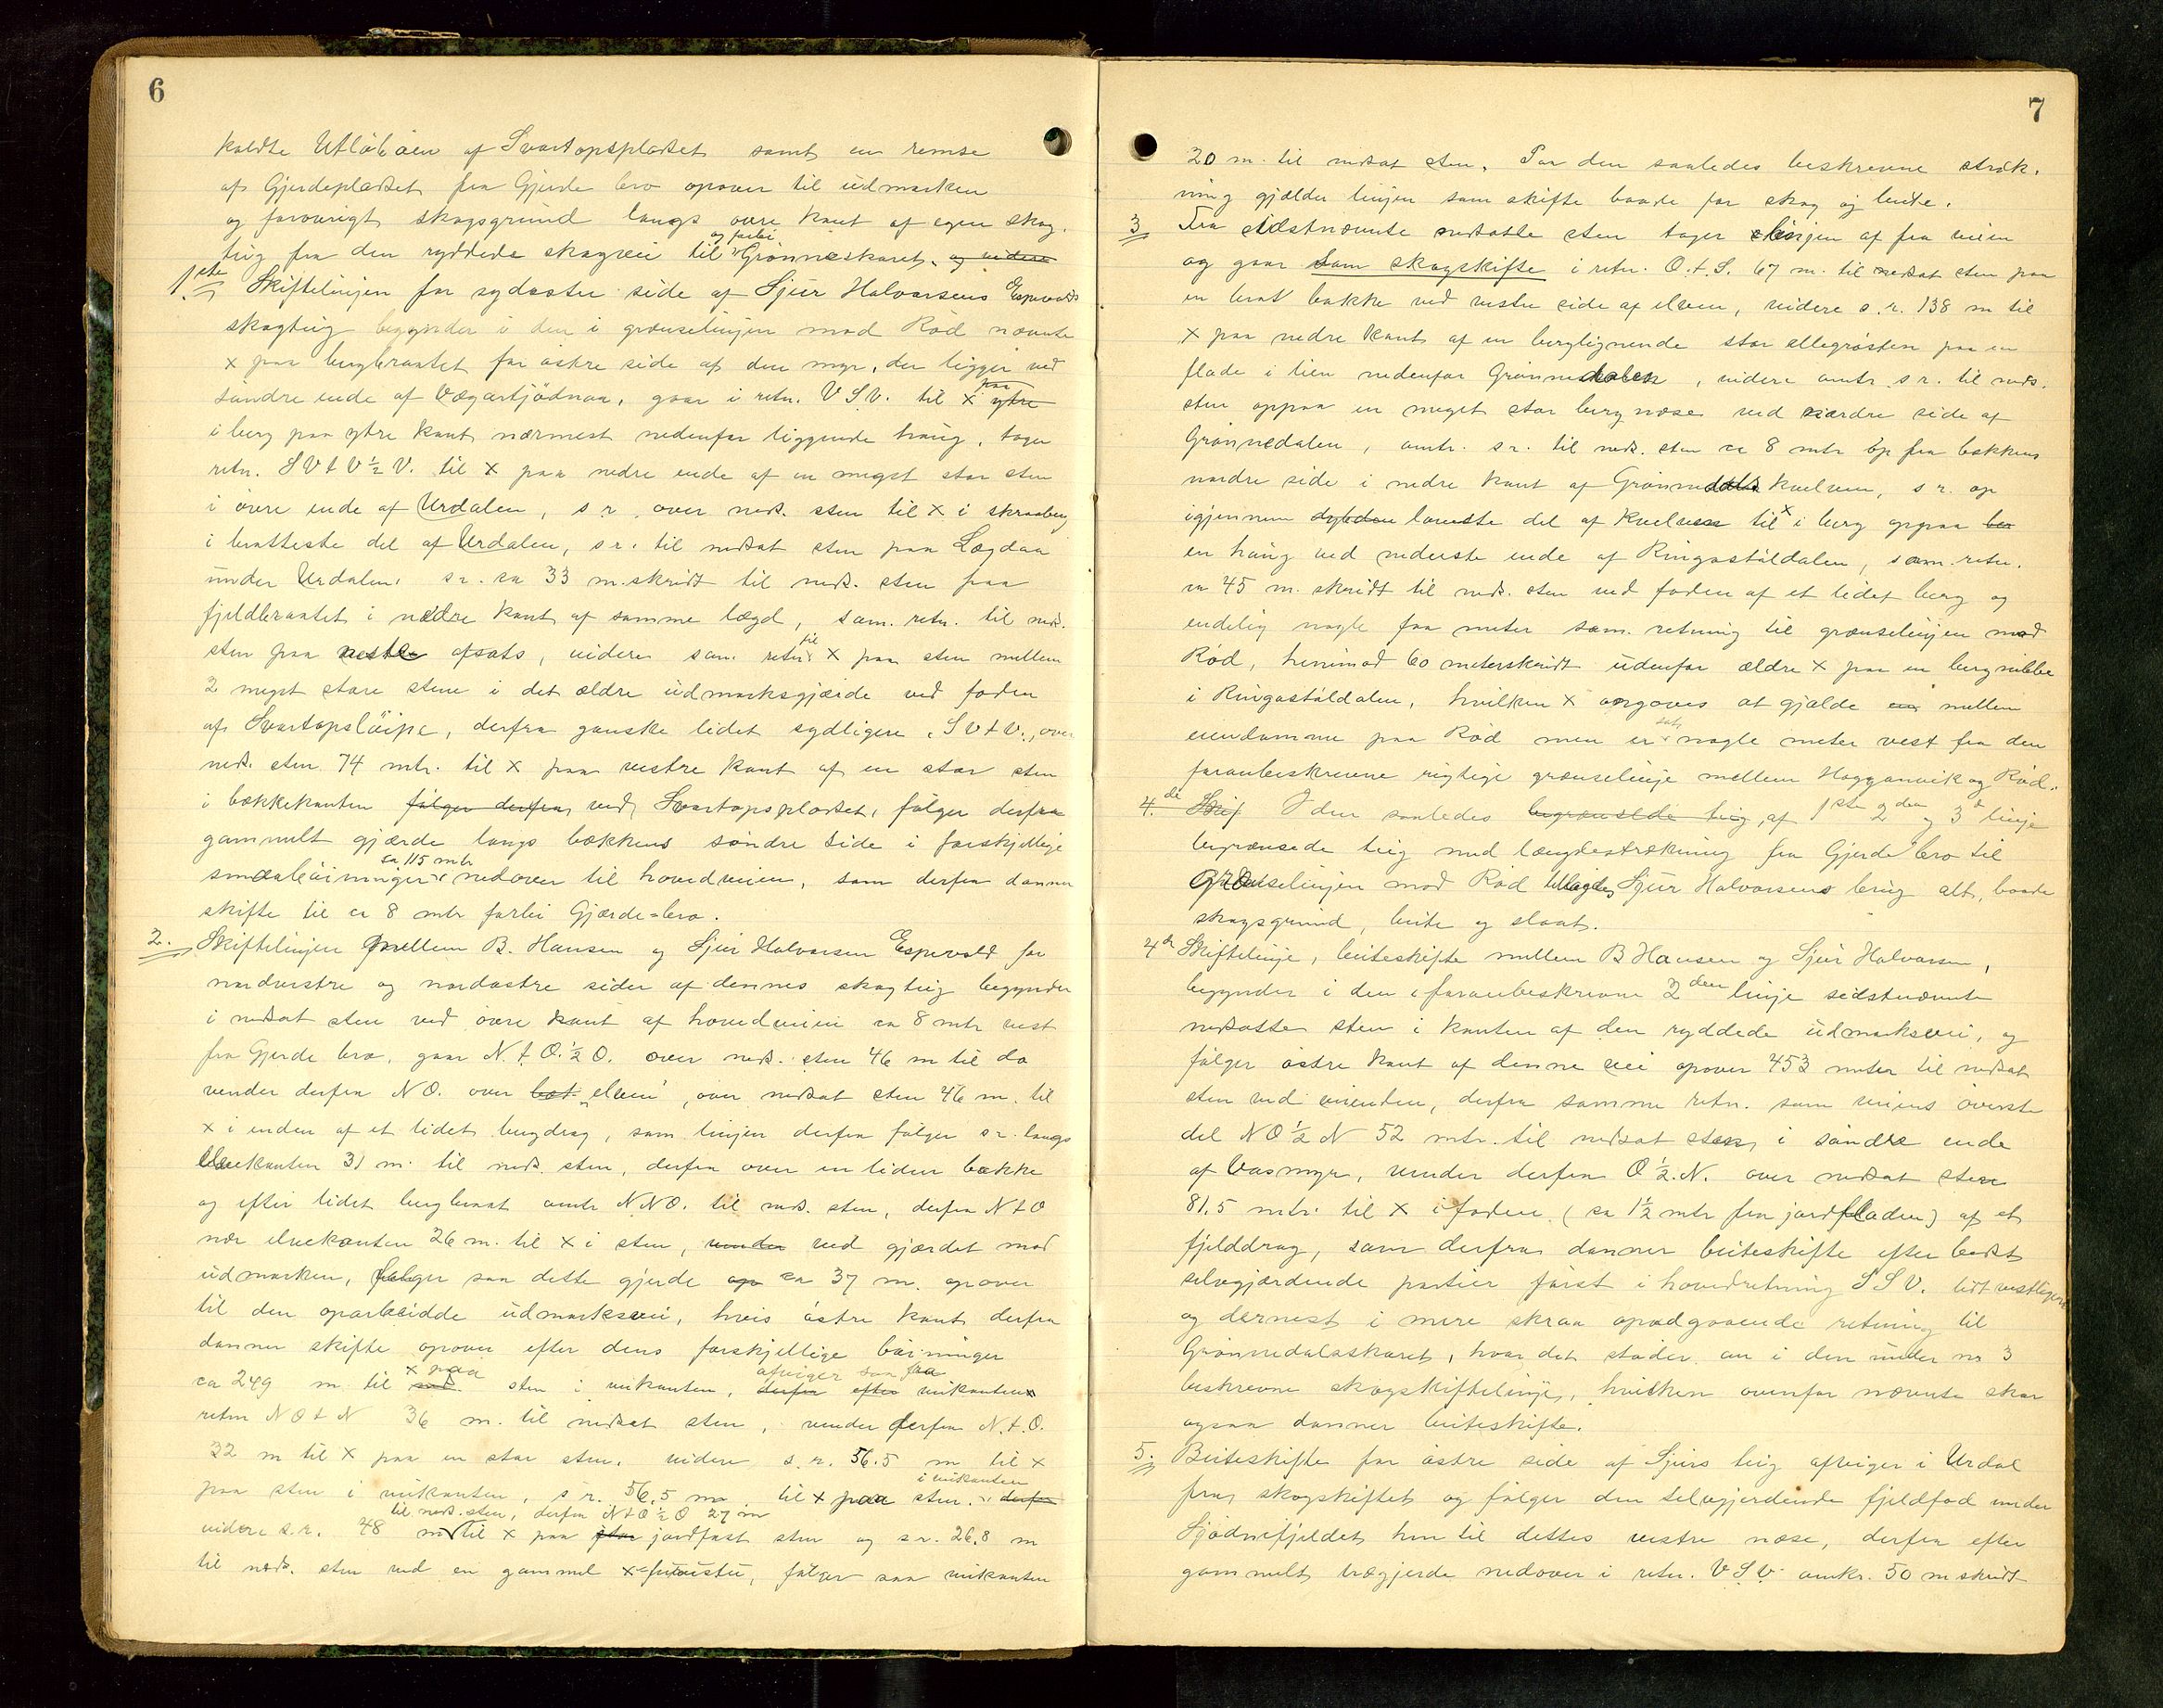 6
kaldte Utlöbaen af Svartopspladset samt en remse
af Gjerdepladset fra Gjerde bro opover til udmarken
og forövrigt skogsgrund langs övre kant af egen skog.
teig fra den ryddede skogvei til og forbi Grönneskaret. og videre
1ste Skiftelinjen for sydöstre side af Sjur Halvorsens Espevolds
skogteig begynder i den i grænselinjen mod Röd nævnte
x paa bergbrautet for östre side af den myr, der ligger ved
söndre ende af Vægartjödnaa, gaar i retn. V S V. til x paa ytre
i berg paa ytre kant nærmest nedenfor liggende haug, tager
retn. S V t V ½ V. til x paa nedre ende af en meget stor sten
i övre ende af Urdalen, s r. over neds. sten til x i skraaberg
i bratteste del af Urdalen, s r. til nedsat sten paa Lægdaa
under Urdalen, s r. ca 33 m. skridt til neds. sten paa
fjeldbrautet i nedre kant af samme lægd, sam. retn. til neds.
sten paa neste afsats, videre sam. retn. til x paa sten mellem
2 meget store stene i det ældre udmarksgjærde ved foden
af Svartopslöipe, derfra ganske lidet sydligere, S V t V., over
neds. sten 74 mtr. til x paa vestre kant af en stor sten
i bækkekanten fölger derfra ved Svartopspladset, fölger derfra
gammelt gjærde langs bækkens söndre side i forskjellige
smaaböininger ca 115 mtr nedover til hovedveien, som derfra danner
skifte til ca 8 mtr forbi Gjærde-bro.
2. Skiftelinjen mellem B. Hansen og Sjur Halvorsen Espevold for
nordvestre og nordöstre sider af dennes skogteig begynder
i nedsat sten ved övre kant af hovedveien ca 8 mtr vest
fra Gjerde bro, gaar N. t. O. ½ O. over neds. sten 46 m til do
vender derfra N O. over bæk elven, over nedsat sten 46 m. til
x i enden af et lidet bergdrag, som linjen derfra fölger s r. langs
elvekanten 31 m. til neds. sten, derfra over en liden bække
og efter lidet bergbraut omtr N N O. til neds. sten, derfra N t O
nær elvekanten 26 m. til x i sten, vender ved gjærdet mod
udmarken, fölger saa dette gjerde op ca 37 m. opover
til den oparbeidde udmarksvei, hvis östre kant derfra
danner skifte opover efter dens forskjellige böininger
ca 249 m til ned. x paa sten i veikanten, derfra efter afviger saa fra veikanten
retn N O t N 36 m. til nedsat sten, vender derfra N. t. O.
32 m til x paa en stor sten, videre s. r. 56.5 m til x
paa sten i veikanten, s r. 56,5 m til x paa sten i veikanten. derfra
videre s. r. 48 m til neds. sten, derfra N t O ½ O 27 m til x paa stor jordfast sten og s r. 26.8 m
til neds. sten ved en gammel x furustu, fölger saa veikanten
7
20 m. til nedsat sten. For den saaledes beskrevne stræk.
ning gjælder linjen som skifte baade for skog og beite.
3 Fra sidstnævnte nedsatte sten tager linjen af fra veien
og gaar som skogskifte i retn. O. t. S. 67 m. til nedsat sten paa
en brat bakke ved vestre side af elven, videre s. r. 138 m til
x paa nedre kant af en berglignende stor sten paa en
flade i lien nedenfor Grönnedalen, videre omtr. s r. til neds.
sten oppaa en meget stor bergnæse ved nordre side af
Grönnedalen, omtr. s r. til neds. sten ca 8 mtr op fra bækkens
nordre side i nedre kant af Grönnedals kvelven, s r. op
igjennem dybden laveste del af kvelven til x i berg oppaa
en haug ved nederste ende af Ringastöldalen, sam. retn.
ca 45 m. skridt til neds. sten ved foden af et lidet berg og
endelig nogle faa meter sam. retning til grænselinjen mod
Röd, henimod 60 meterskridt udenfor ældre x paa en bergnibbe
i Ringastöldalen, hvilken x opgaves at gjælde mellem
eiendomme paa Röd men er sat nogle meter vest fra den
foranbeskrevne rigtige grænselinje mellem Hogganvik og Röd.
4.de Skif I den saaledes begrænsede teig, af 1ste 2den og 3d linje
begrænsede teig med længdestrækning fra Gjerde bro til
Grænselinjen mod Röd tillagdes Sjur Halvorsens brug alt, baade
skogsgrund, beite og slaat.
4de Skiftelinje, beiteskifte mellem B Hansen og Sjur Halvorsen,
begynder i den i foranbeskrevne 2den linje sidstnævnte
nedsatte sten i kanten af den ryddede udmarksvei, og
fölger östre kant af denne vei opover 453 meter til nedsat
sten ved veienden, derfra samme retn. som veiens överste
del N O ½ N 52 mtr. til nedsat sten i söndre ende
af Vasmyr, vender derfra O ½. N. over nedsat sten
81.5 mtr. til x i foden (ca 1½ mtr fra jordfladen) af et
fjelddrag, som derfra danner beiteskifte efter bedst
selvgjærdende partier först i hovedretning S S V. lidt vestligere
og dernest i mere skraa opadgaaende retning til
Grönnedalsskaret, hvor det stöder an i den under no 3
beskrevne skogskiftelinje, hvilken ovenfor nævnte skar
ogsaa danner beiteskifte.
5. Beiteskifte for östre side af Sjurs teig afviger i Urdal
fra skogskiftet og fölger den selvgjerdende fjeldfod under
Sjödnefjeldet hen til dettes vestre næse, derfra efter
gammelt trægjerde nedover i retn. V S V. omkr. 50 m skridt